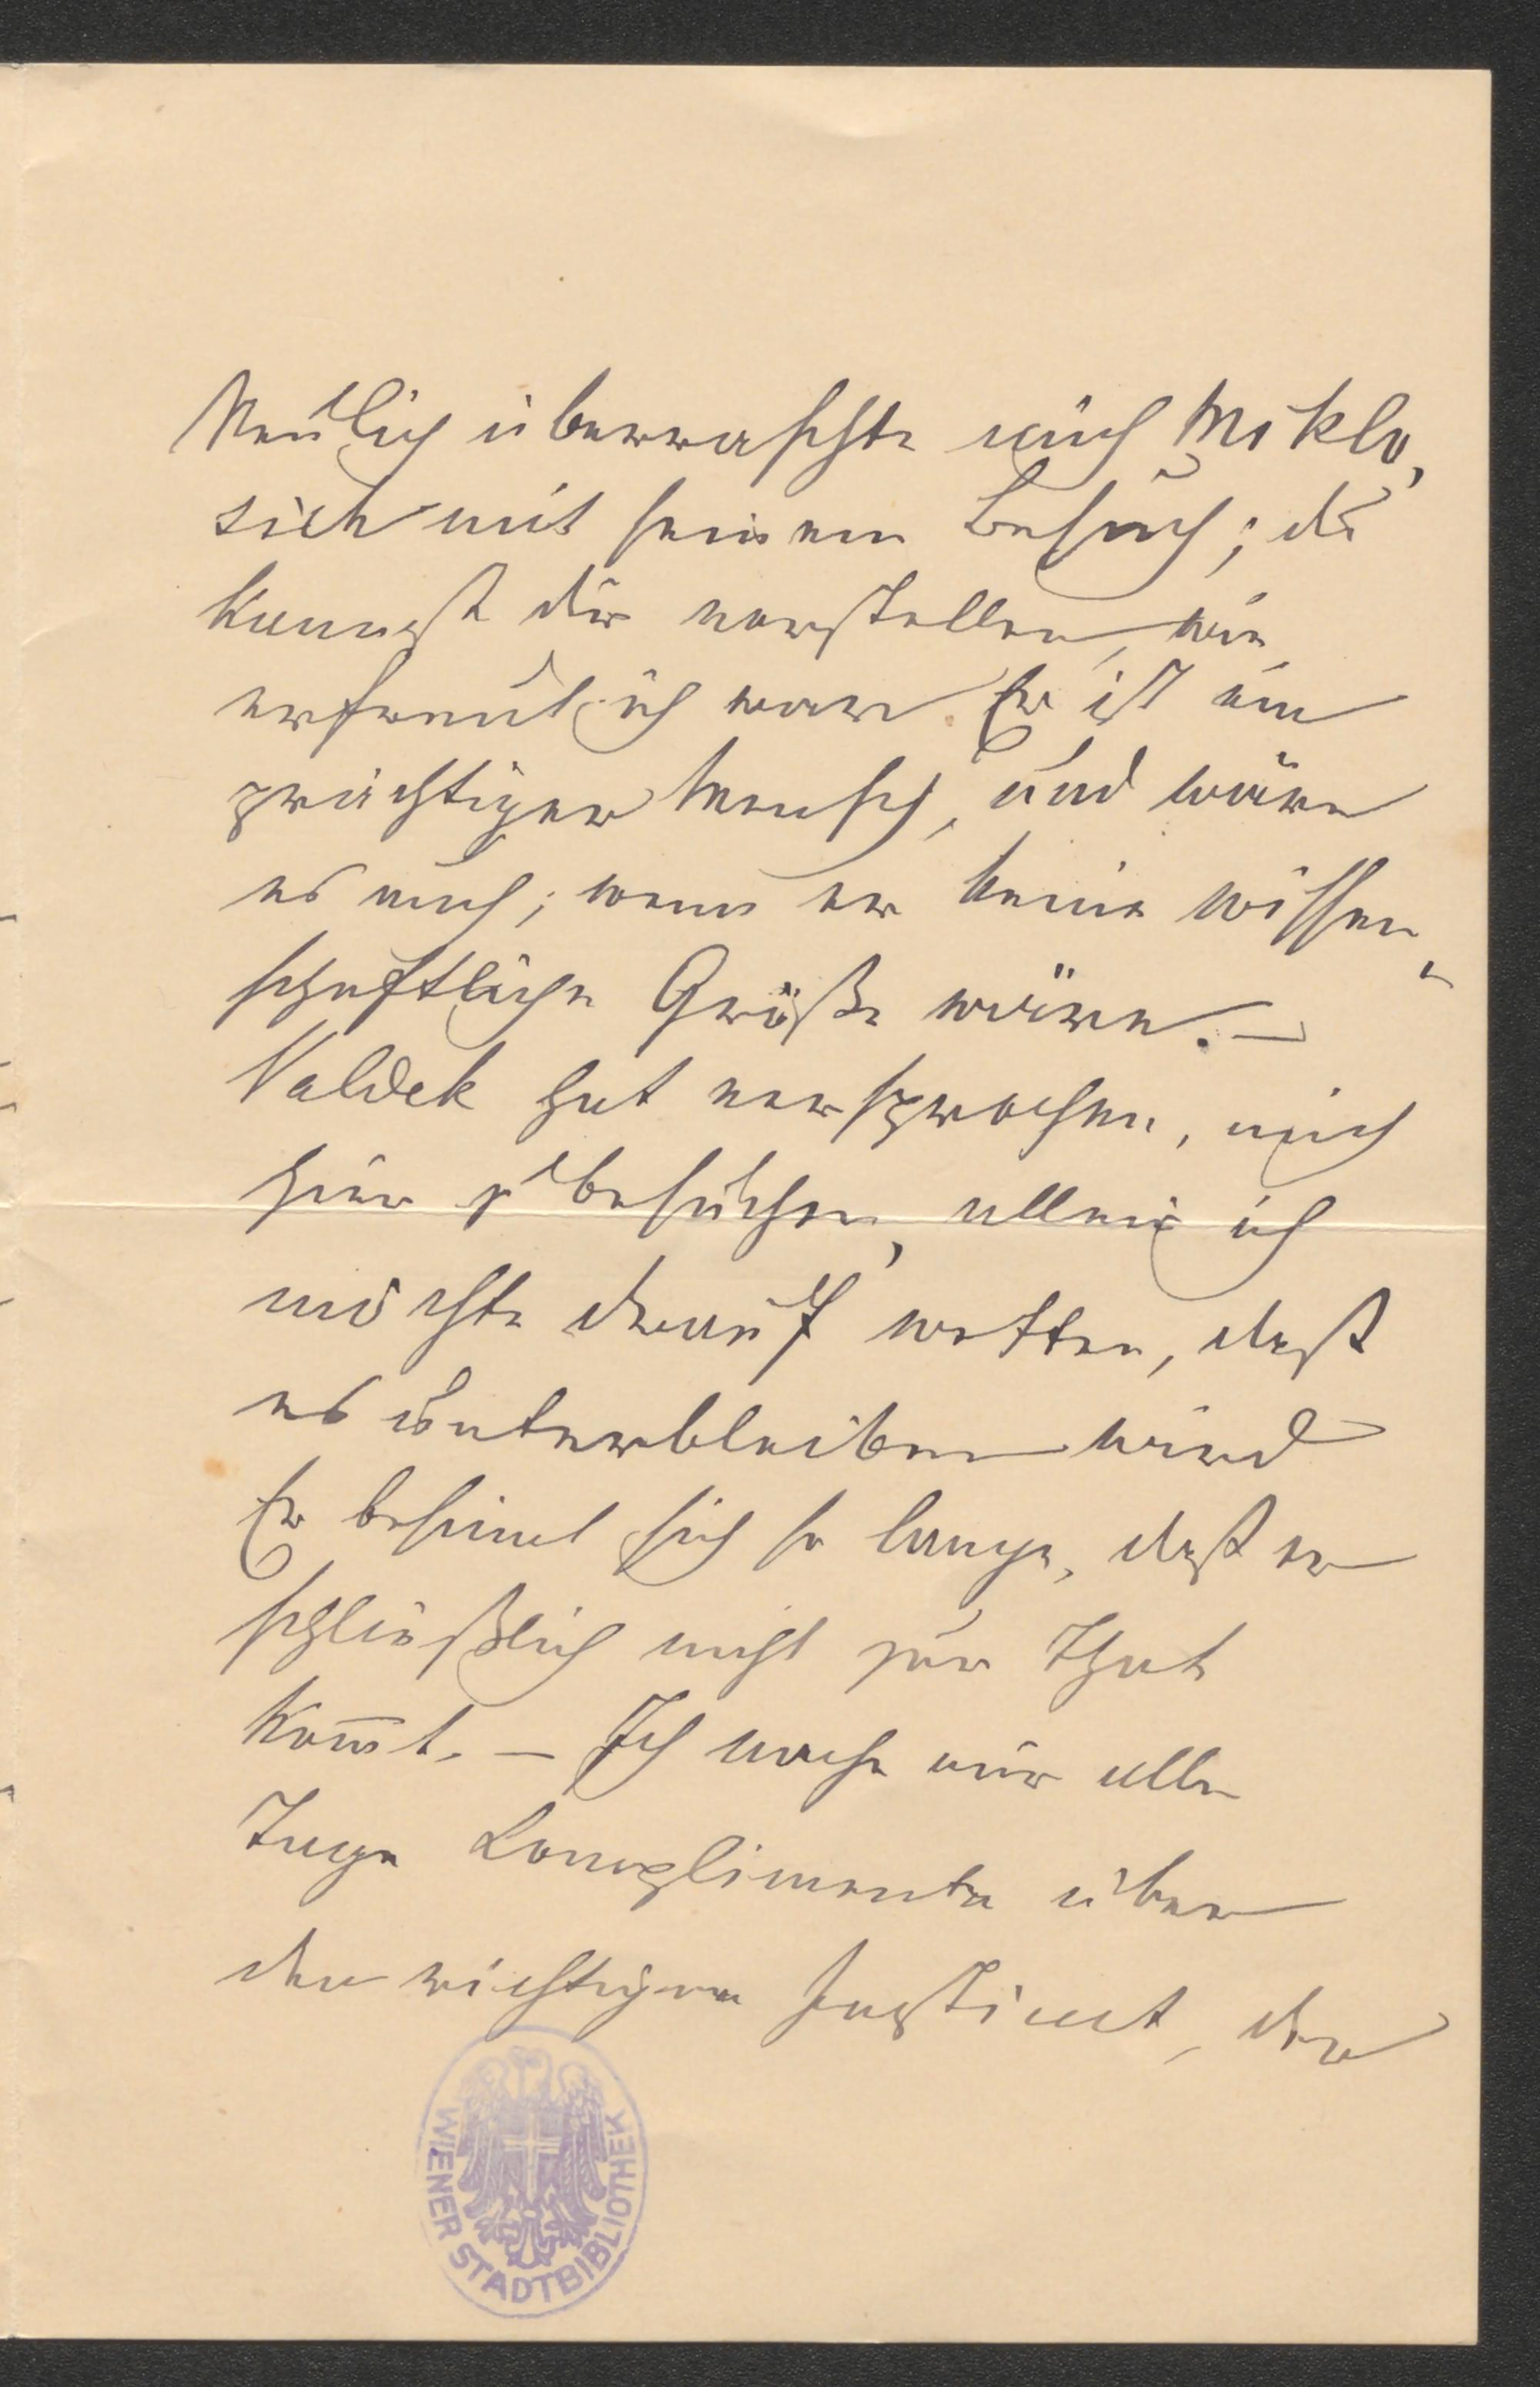 Neulich überraschte mich Miklo,
sich mit seinem Besuch; du
kannst dir vorstellen, wie
erfreut ich war. Er ist ein
prächtiger Mensch, und wäre
es auch, wenn er keine wissen„
schaftliche Größe wäre. —
Valdek hat versprochen, mich
hier zu besuchen, allein ich
möchte darauf wetten, daß
es unterbleiben wird
Er besinnt sich so lange, daß er
schließlich nicht zur That
kom̅t. — Ich mache mir alle
Tage Complimente über
den richtigen Instinct, der
WIENER STADTBIBLIOTHEK